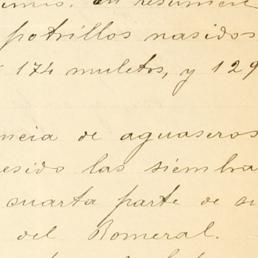 En resumen
potrillos nasidos
174 muletos, y 129
ncia de aguaseros
esido las siembra
cuarta parte de su
del Romeral.